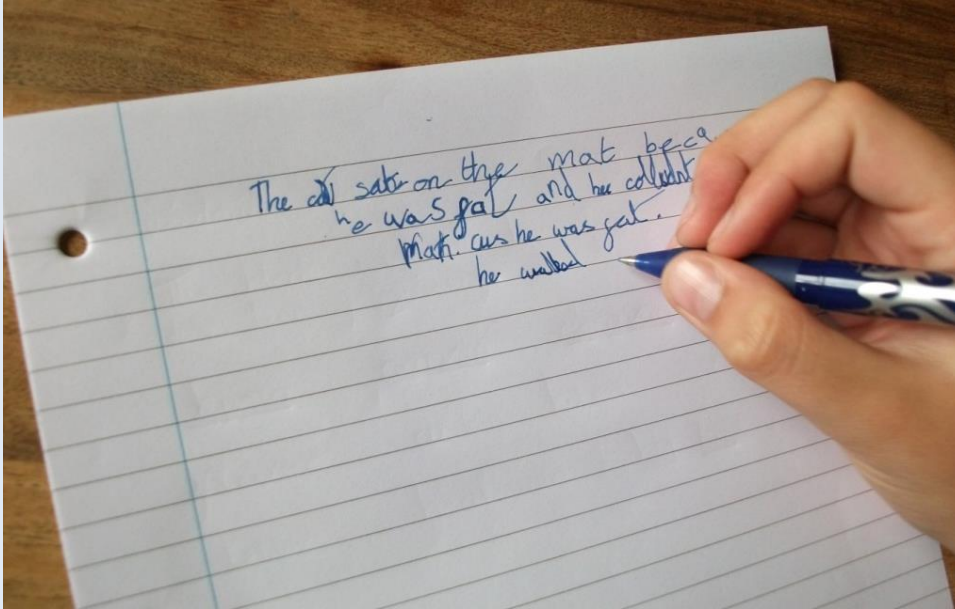 The cat sat on the mat beca
he was fat and he coludnt
Mat. cus he was fat.
he walked